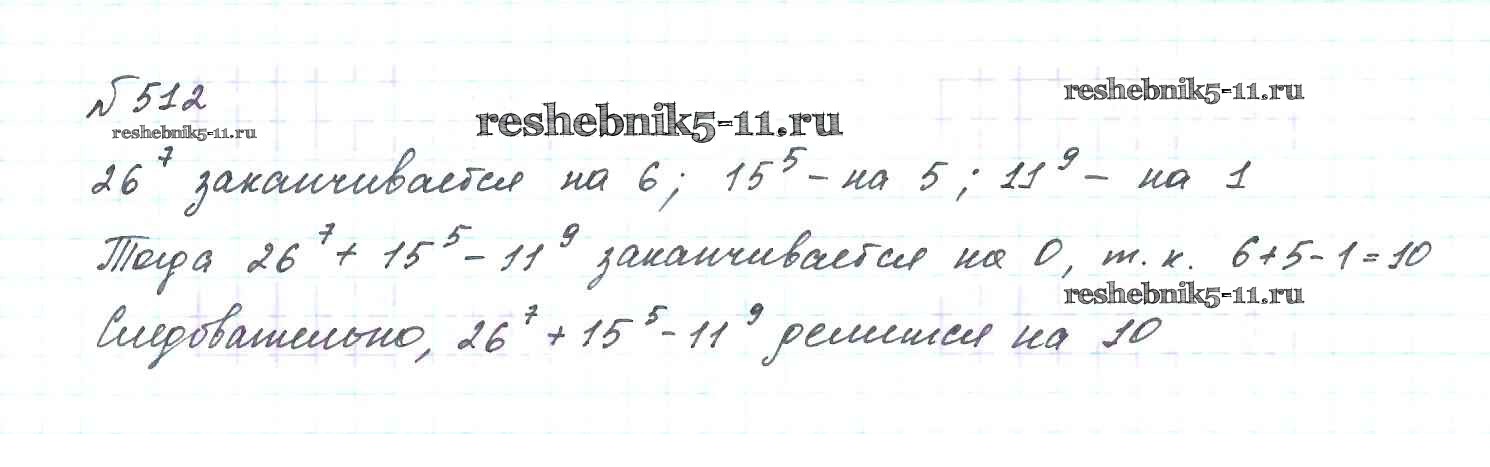 № 512
reshebnik5-11.ru
reshebnik5-11.ru
reshebnik5-11.ru
26⁷ заканчивается на 6; 15⁵ – на 5; 11⁹ – на 1
Тогда 26⁷ + 15⁵ – 11⁹ заканчивается на 0, т. к. 6+5-1=10
reshebnik5-11.ru
Следовательно, 26⁷ + 15⁵ – 11⁹ делится на 10